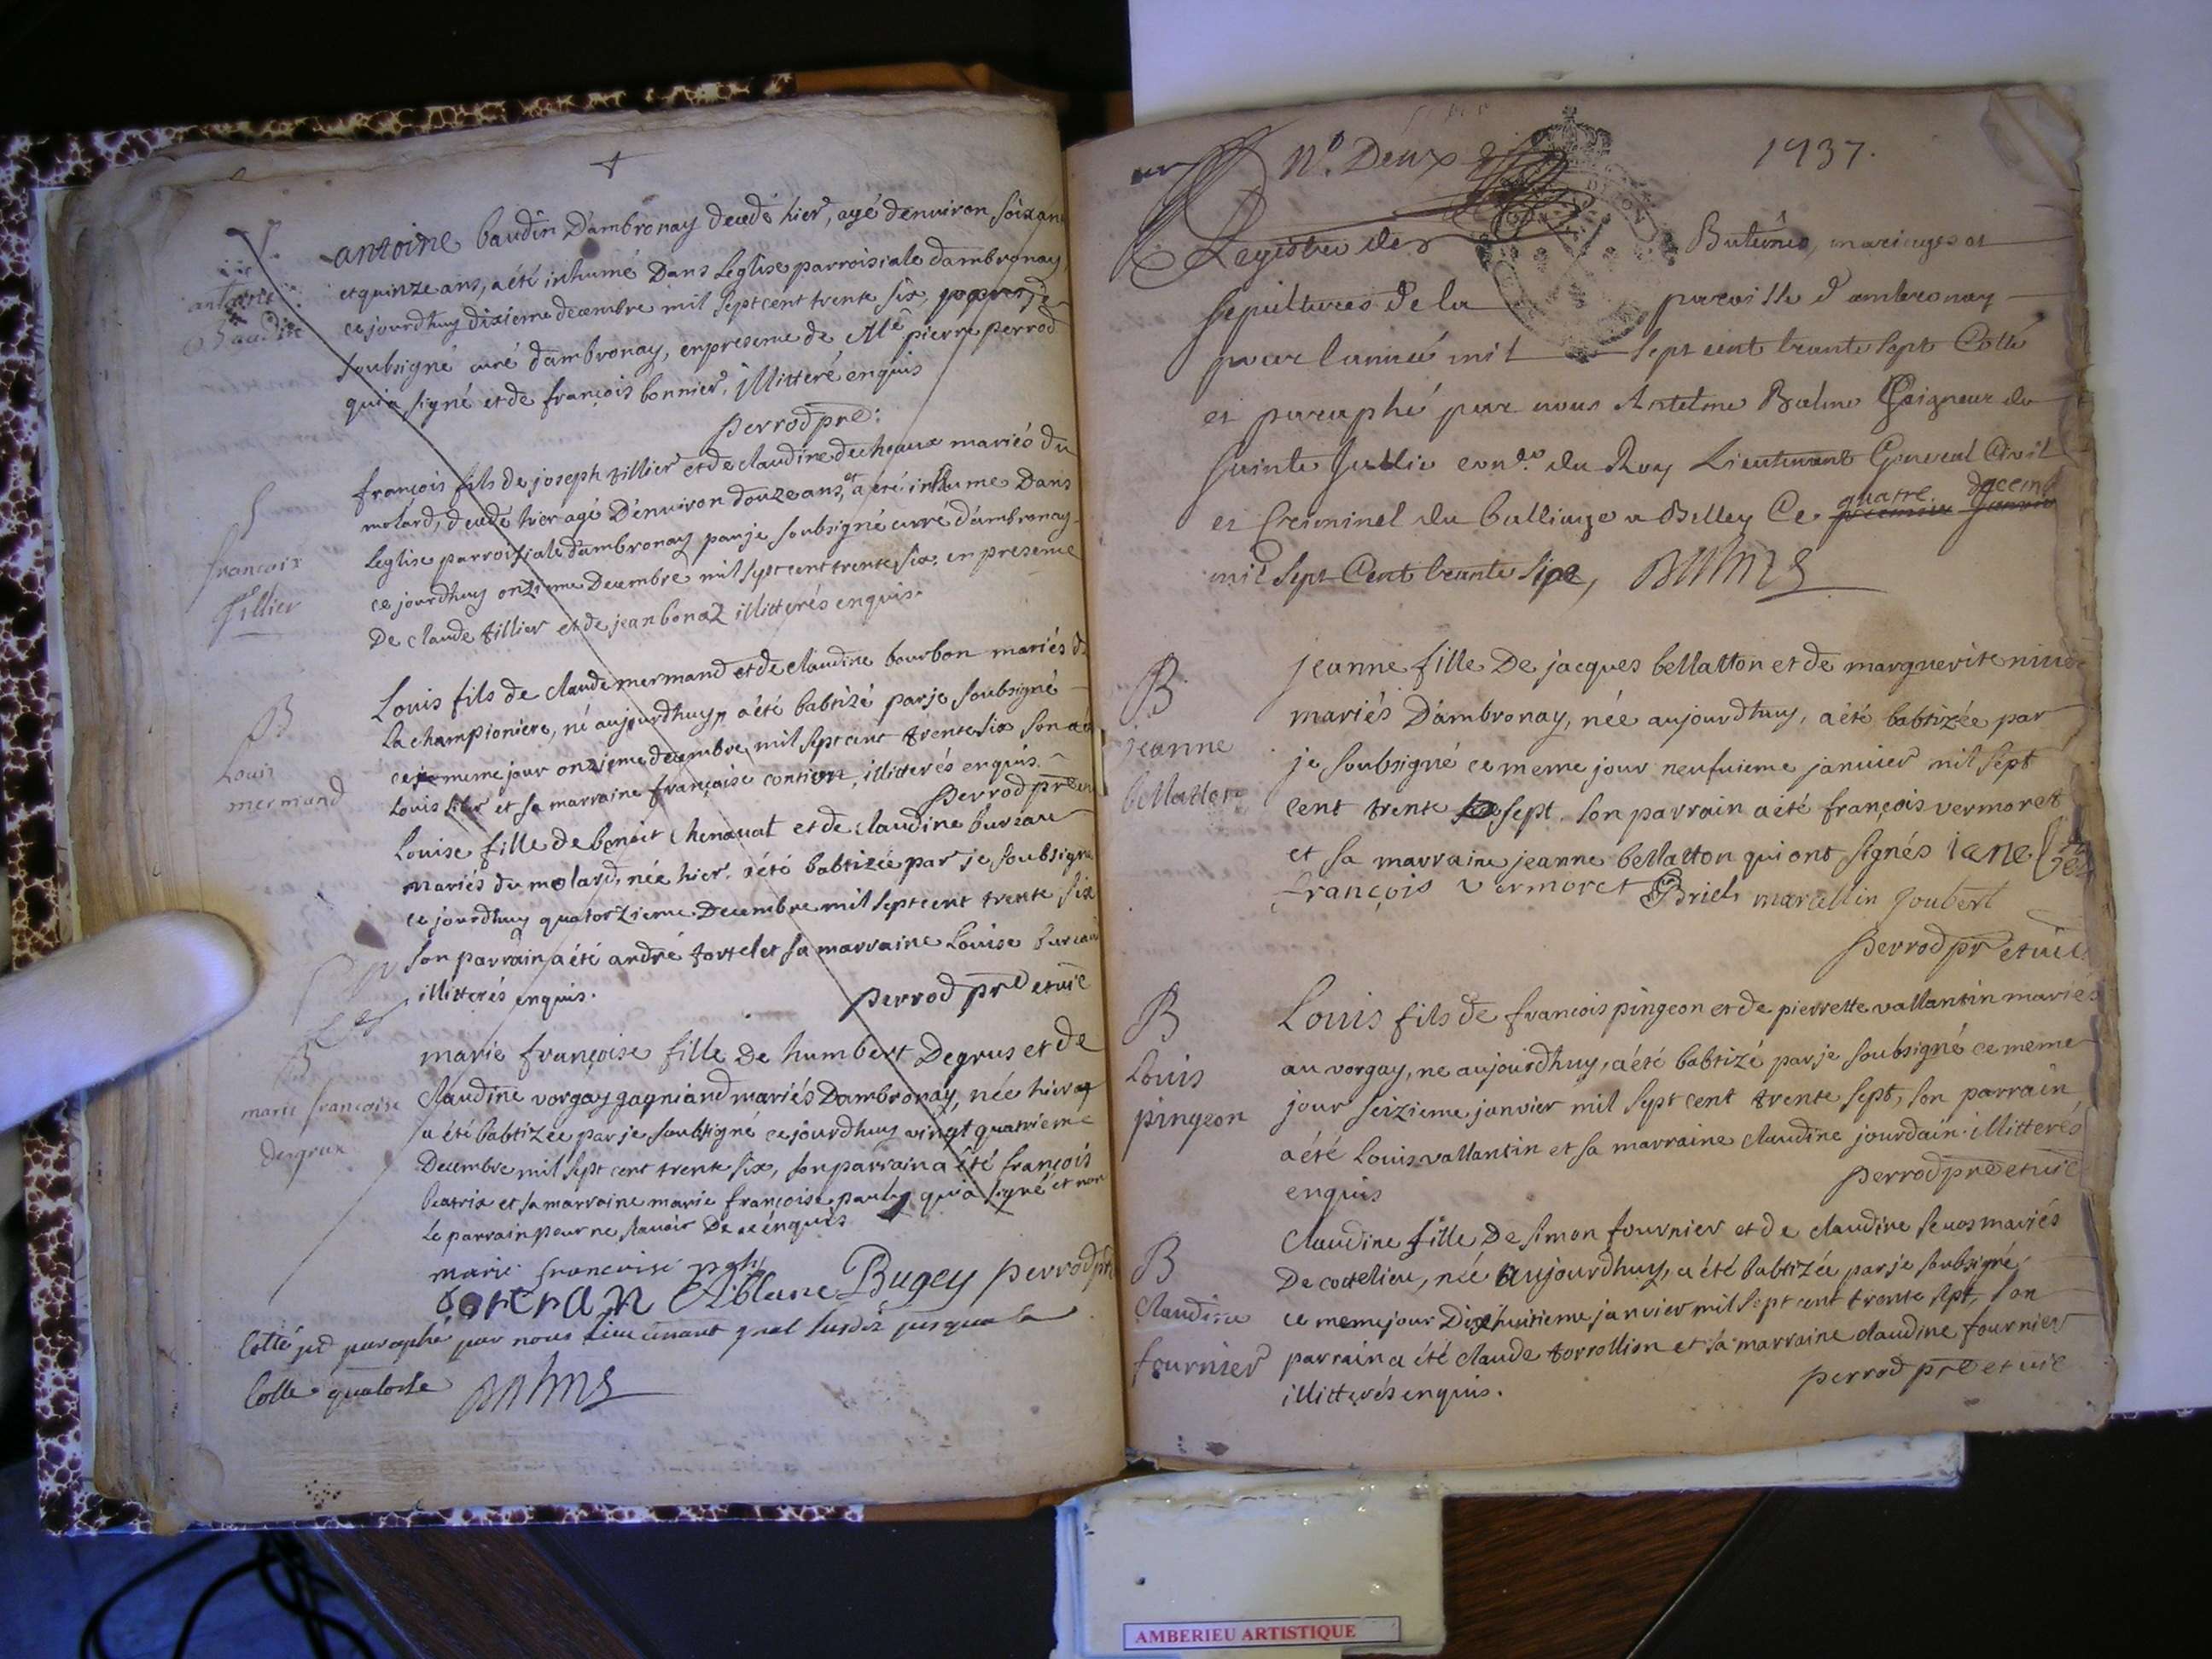 S.
antoine
Baudin
antoine baudin Dambronay decedé hier, agé denuiron soixan
et quinze ans, a été inhumé Dans Leglise parroisiale dambronay
ce jourdhuy dixieme decembre mil sept cent trente six, par je
soubsigné curé dambronay, en presence de Mre pierre perrod
qui a signé et de françois bonnier, illitteré enquis
perrod pre:
S
francois
tillier
françois fils de joseph tillier et de claudine decheaux mariés du
molard, decedé hier agé Denuiron douze ans, et a été inhumé Dans
Leglise parroissiale dambronay par je soubsigné curé dambronay
ce jourdhuy onzieme Decembre mil sept cent trente six, en presence
De claude tillier et de jean bonaz illitterés enquis.
B
Louis
mermand
Louis fils de claude mermand et de claudine bourbon mariés d
La championiere, né aujourdhuy, a été babtizé par je soubsigné
ce meme jour onzieme decembre mil sept cent trente six son
Louis et sa marraine françoise illitterés enquis.
perrod pre
Louise fille de benoit chenauat et de claudine bureau
mariés du molard, née hier, a été babtizée par je soubsigné
ce jourdhuy quatorzieme Decembre mil sept cent trente six
son parrain a été andré tortel et sa marraine Louise bureau
illitterés enquis.
perrod pre et vic
B
marie françoise
degrux
marie françoise fille De humbert Degrus et de
claudine vorgay gagniand mariés Dambronay, née hier
a été babtizée par je soubsigné ce jourdhuy vingt quatrieme
Decembre mil sept cent trente six, son parrain a été françois
beatrix et sa marraine marie françoise pauly qui a signé et non
Le parrain pour ne sauoir De ce enquis
marie francoise
Bugey perrod pre
Cotté et paraphé par nous Lieutenant gnal susdit jusqua la
Cotte quatorze Balme
No. Deux
1737.
Registre des Batêmes, mariages et
sepultures de la paroisse d'ambronay
pour l'année mil sept cent trente sept Cotté
et paraphé par nous Antelme Balme Seigneur de
Sainte Jullie conser. du Roy Lieutenant General Civil
et Criminel du bailliage a Belley Ce premier Janvier quatre decemb
mil Sept Cent trente six, Balme
B
jeanne
bellatton
jeanne fille De jacques bellatton et de marguerite
mariés Dambronay, née aujourdhuy, a été babtizée par
je soubsigné ce meme jour neufuieme januier mil sept
cent trente sept. son parrain a été françois vermoret
et sa marraine jeanne bellatton qui ont signés iane
françois vermoret Briel marcellin Joubert
perrod pr et vic
B
Louis
pingeon
Louis fils de francois pingeon et de pierrette vallantin mariés
au vorgay, ne aujourdhuy, a été babtizé par je soubsigné ce meme
jour seizieme janvier mil sept cent trente sept, son parrain
a été Louis vallantin et sa marraine claudine jourdain illitterés
enquis
perrod pre et vic
B
claudine
fournier
claudine fille De simon fournier et de claudine seuos mariés
De cottelieu, née aujourdhuy, a été babtizée par je soubsigné
ce meme jour Dixhuitieme janvier mil sept cent trente sept, son
parrain a été claude torrollion et sa marraine claudine fournier
illitterés enquis.
perrod pre et vic
AMBERIEU ARTISTIQUE